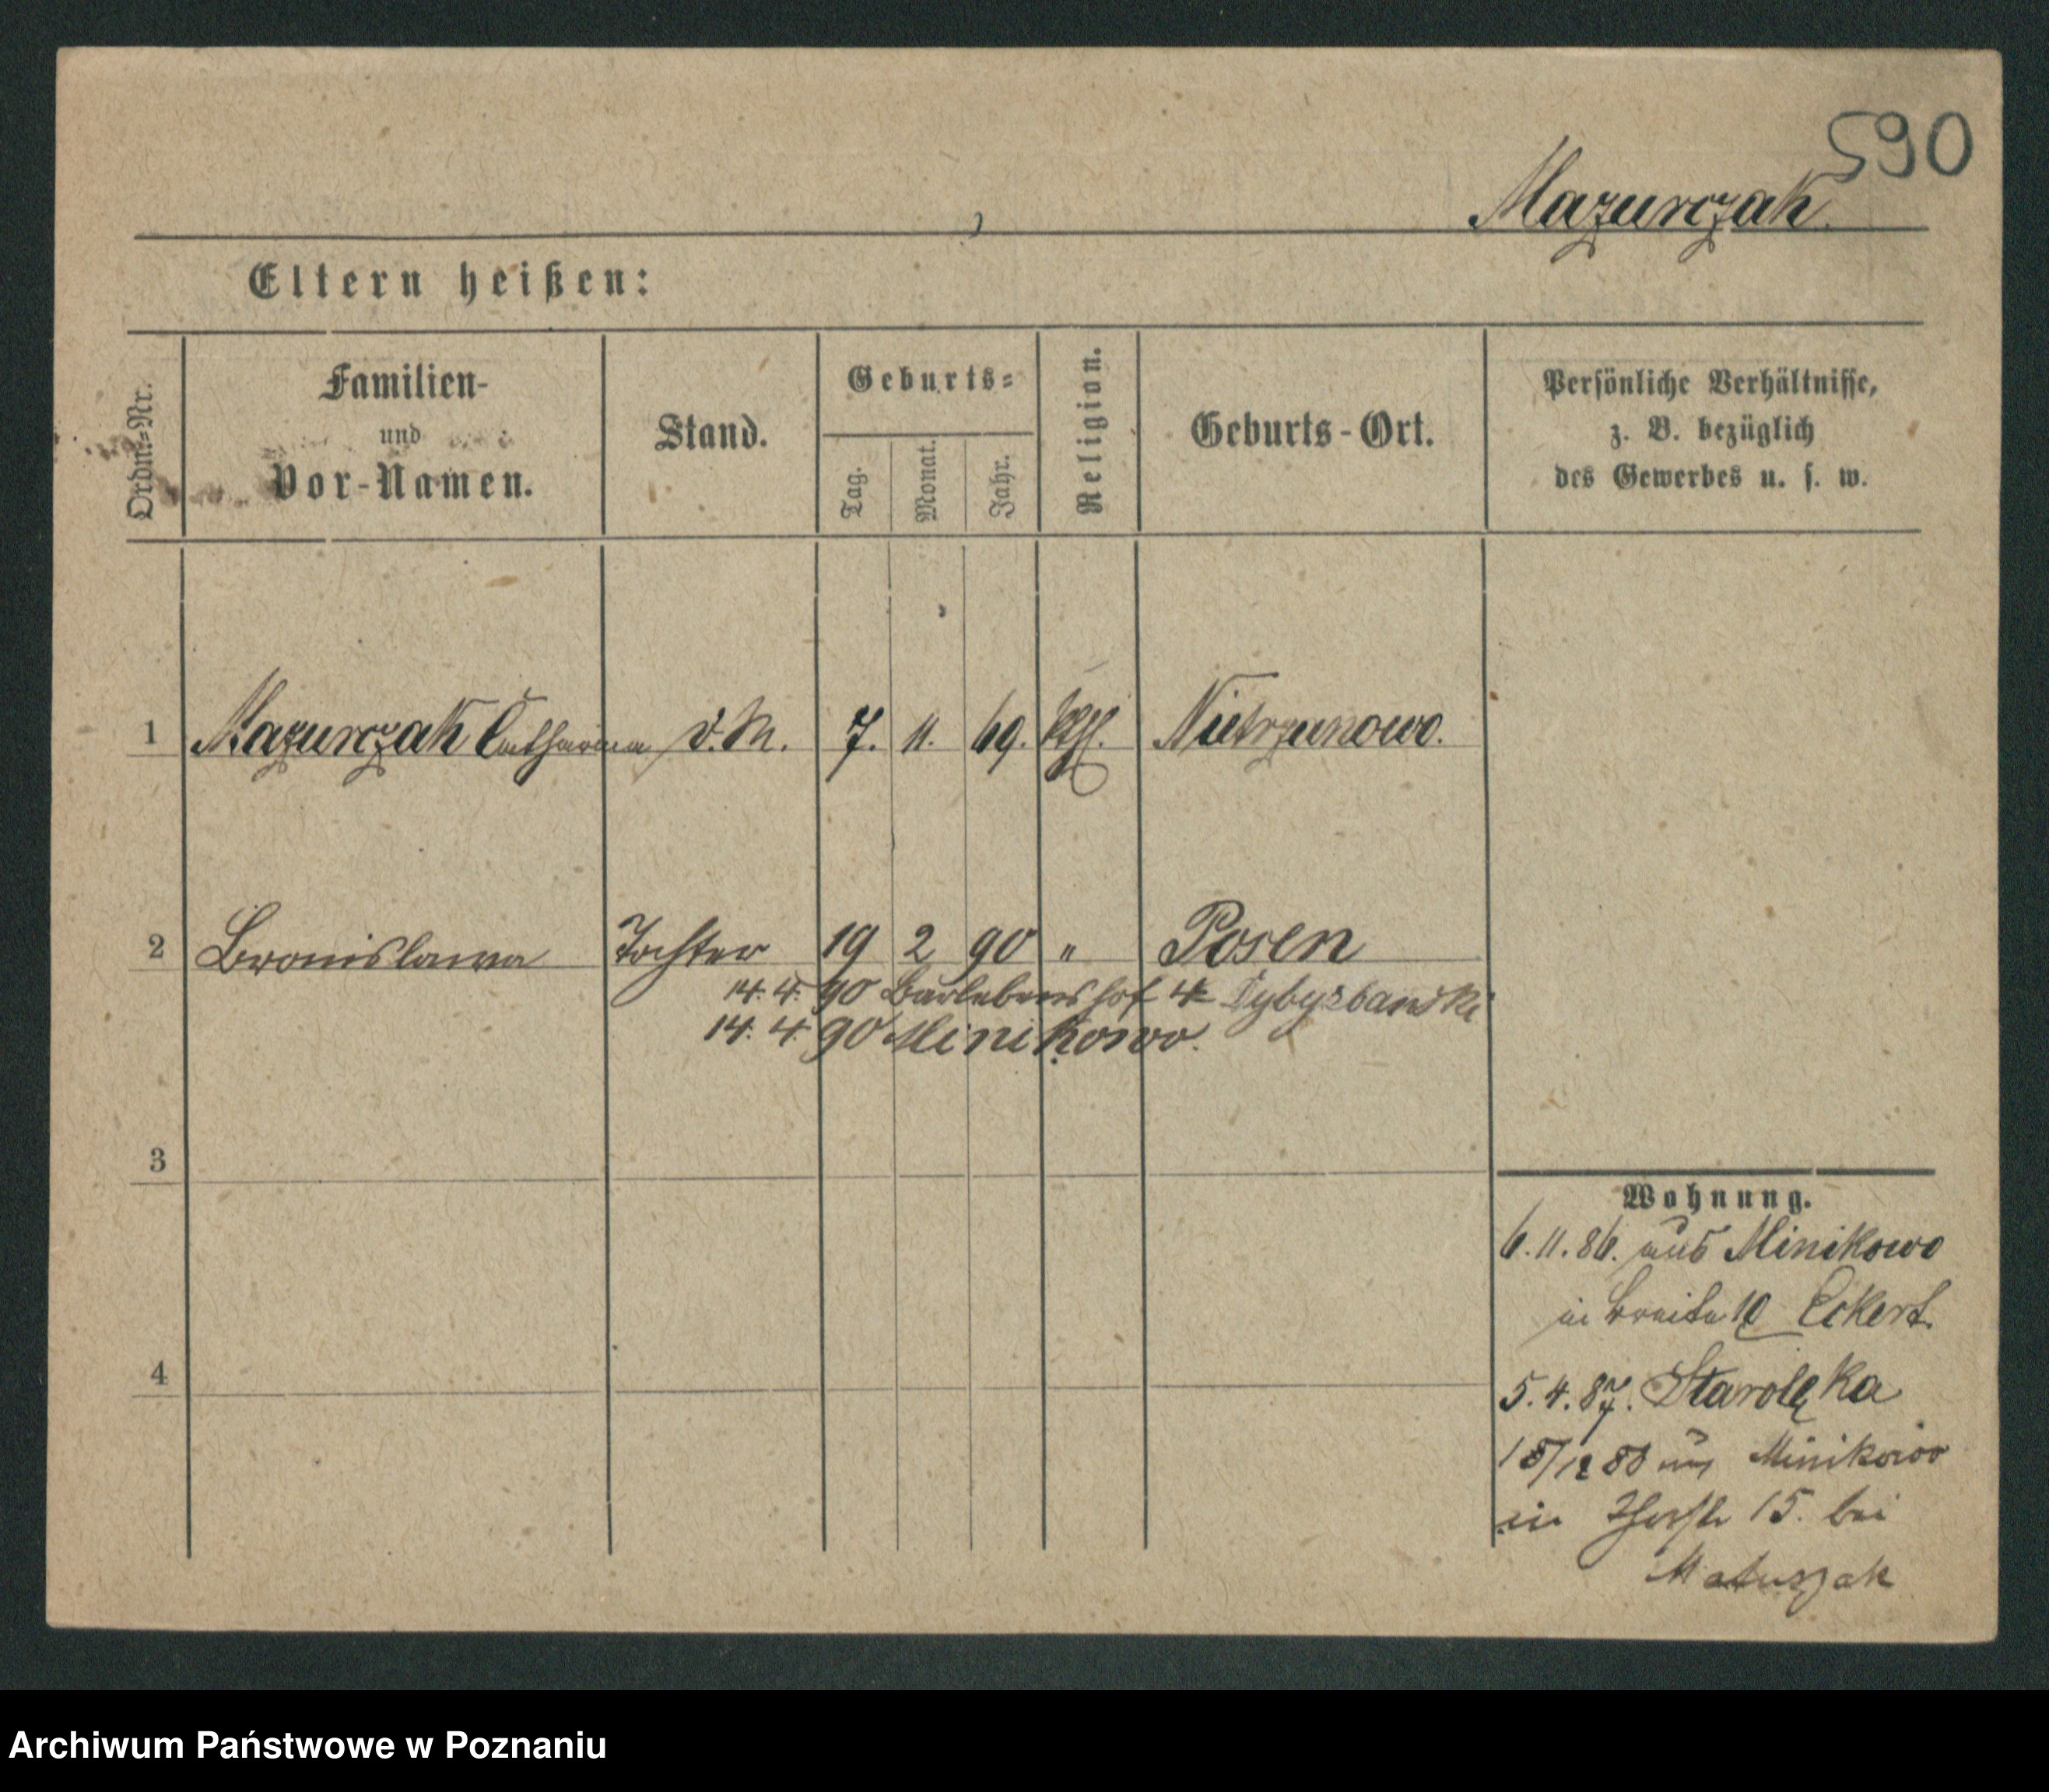 590
Mazurczak.
Eltern heißen:
Ordn.=Nr.
Familien-
und
Vor-Namen.
Stand.
Geburts=
Tag.
Monat.
Jahr.
Religion.
Geburts-Ort.
Persönliche Verhältnisse,
z. B. bezüglich
des Gewerbes u. s. w.
1 Mazurczak Catharina d. M. 7. 11. 69. kth. Nietrzanowo.
2 Bronislawa Tochter 19 2 90 " Posen
14. 4. 90 Barlebenshof 4
14. 4. 90 Minikowo.
3
4
Wohnung.
6. 11. 86. aus Minikowo
in Breite 10 Eckert.
5. 4. 87. Starolęka
18/12 88 aus Minikowo
in 15. bei
Matuszak
Archiwum Państwowe w Poznaniu